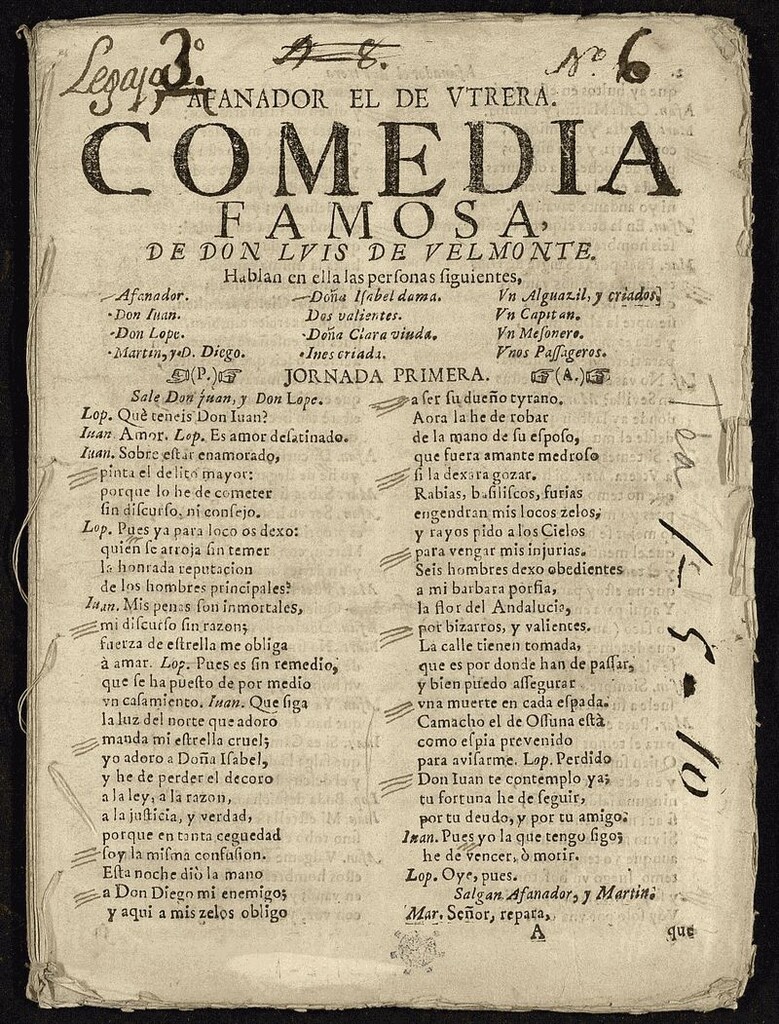 Legajo 3.º
A 8.
Nº. 6
AFANADOR EL DE VTRERA.
COMEDIA
FAMOSA,
DE DON LVIS DE VELMONTE.
Hablan en ella las personas siguientes,
Afanador. Doña Isabel dama. Vn Alguazil, y criados.
Don Iuan. Dos valientes. Vn Capitan.
Don Lope. Doña Clara viuda. Vn Mesonero.
Martin, y D. Diego. Ines criada. Vnos Passageros.
☜(P.)☞ JORNADA PRIMERA. ☞(A.)☞
Sale Don juan, y Don Lope.
Lop. Què teneis Don Iuan?
Iuan. Amor. Lop. Es amor desatinado.
Iuan. Sobre estar enamorado,
pinta el delito mayor:
porque lo he de cometer
sin discurso, ni consejo.
Lop. Pues ya para loco os dexo:
quien se arroja sin temer
la honrada reputacion
de los hombres principales?
Iuan. Mis penas son inmortales,
mi discurso sin razon;
fuerza de estrella me obliga
à amar. Lop. Pues es sin remedio,
que se ha puesto de por medio
vn casamiento. Iuan. Que siga
la luz del norte que adoro
manda mi estrella cruel;
yo adoro a Doña Isabel,
y he de perder el decoro
a la ley, a la razon,
a la justicia, y verdad,
porque en tanta ceguedad
soy la misma confusion.
Esta noche diò la mano
a Don Diego mi enemigo;
y aqui a mis zelos obligo
a ser su dueño tyrano.
Aora la he de robar
de la mano de su esposo,
que fuera amante medroso
si la dexara gozar.
Rabias, basiliscos, furias
engendran mis locos zelos,
y rayos pido a los Cielos
para vengar mis injurias.
Seis hombres dexo obedientes
a mi barbara porfia,
la flor del Andalucia,
por bizarros, y valientes.
La calle tienen tomada,
que es por donde han de passar,
y bien puedo assegurar
vna muerte en cada espada.
Camacho el de Ossuna està
como espia prevenido
para avisarme. Lop. Perdido
Don Iuan te contemplo ya;
tu fortuna he de seguir,
por tu deudo, y por tu amigo.
Iuan. Pues yo la que tengo sigo;
he de vencer, ò morir.
Lop. Oye, pues.
Salgan Afanador, y Martin.
Mar. Señor, repara,
A que
Tea 1-5-10